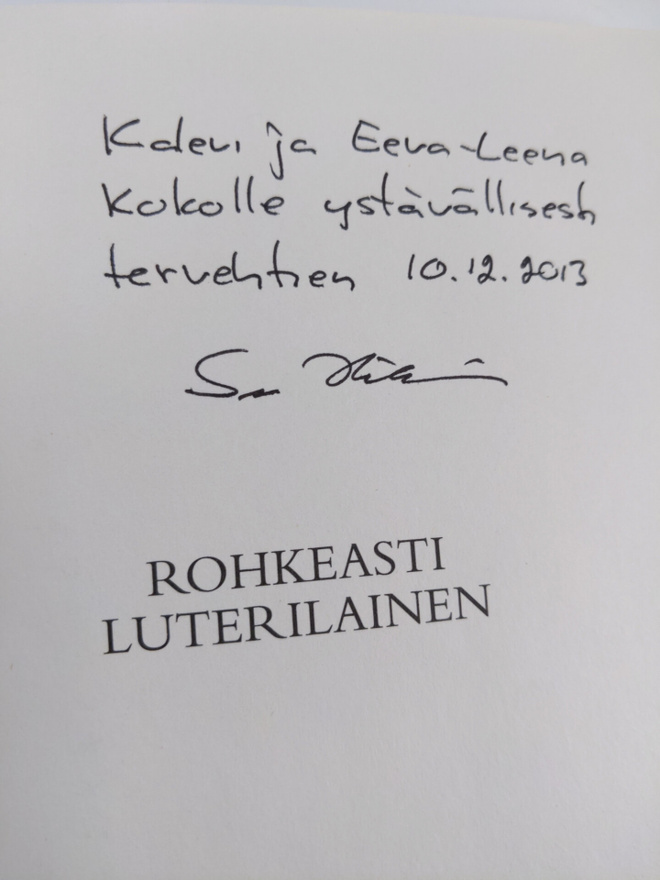 Kalevi ja Eeva-Leena
Kokolle ystävällisesti
tervehtien 10.12.2013
ROHKEASTI
LUTERILAINEN